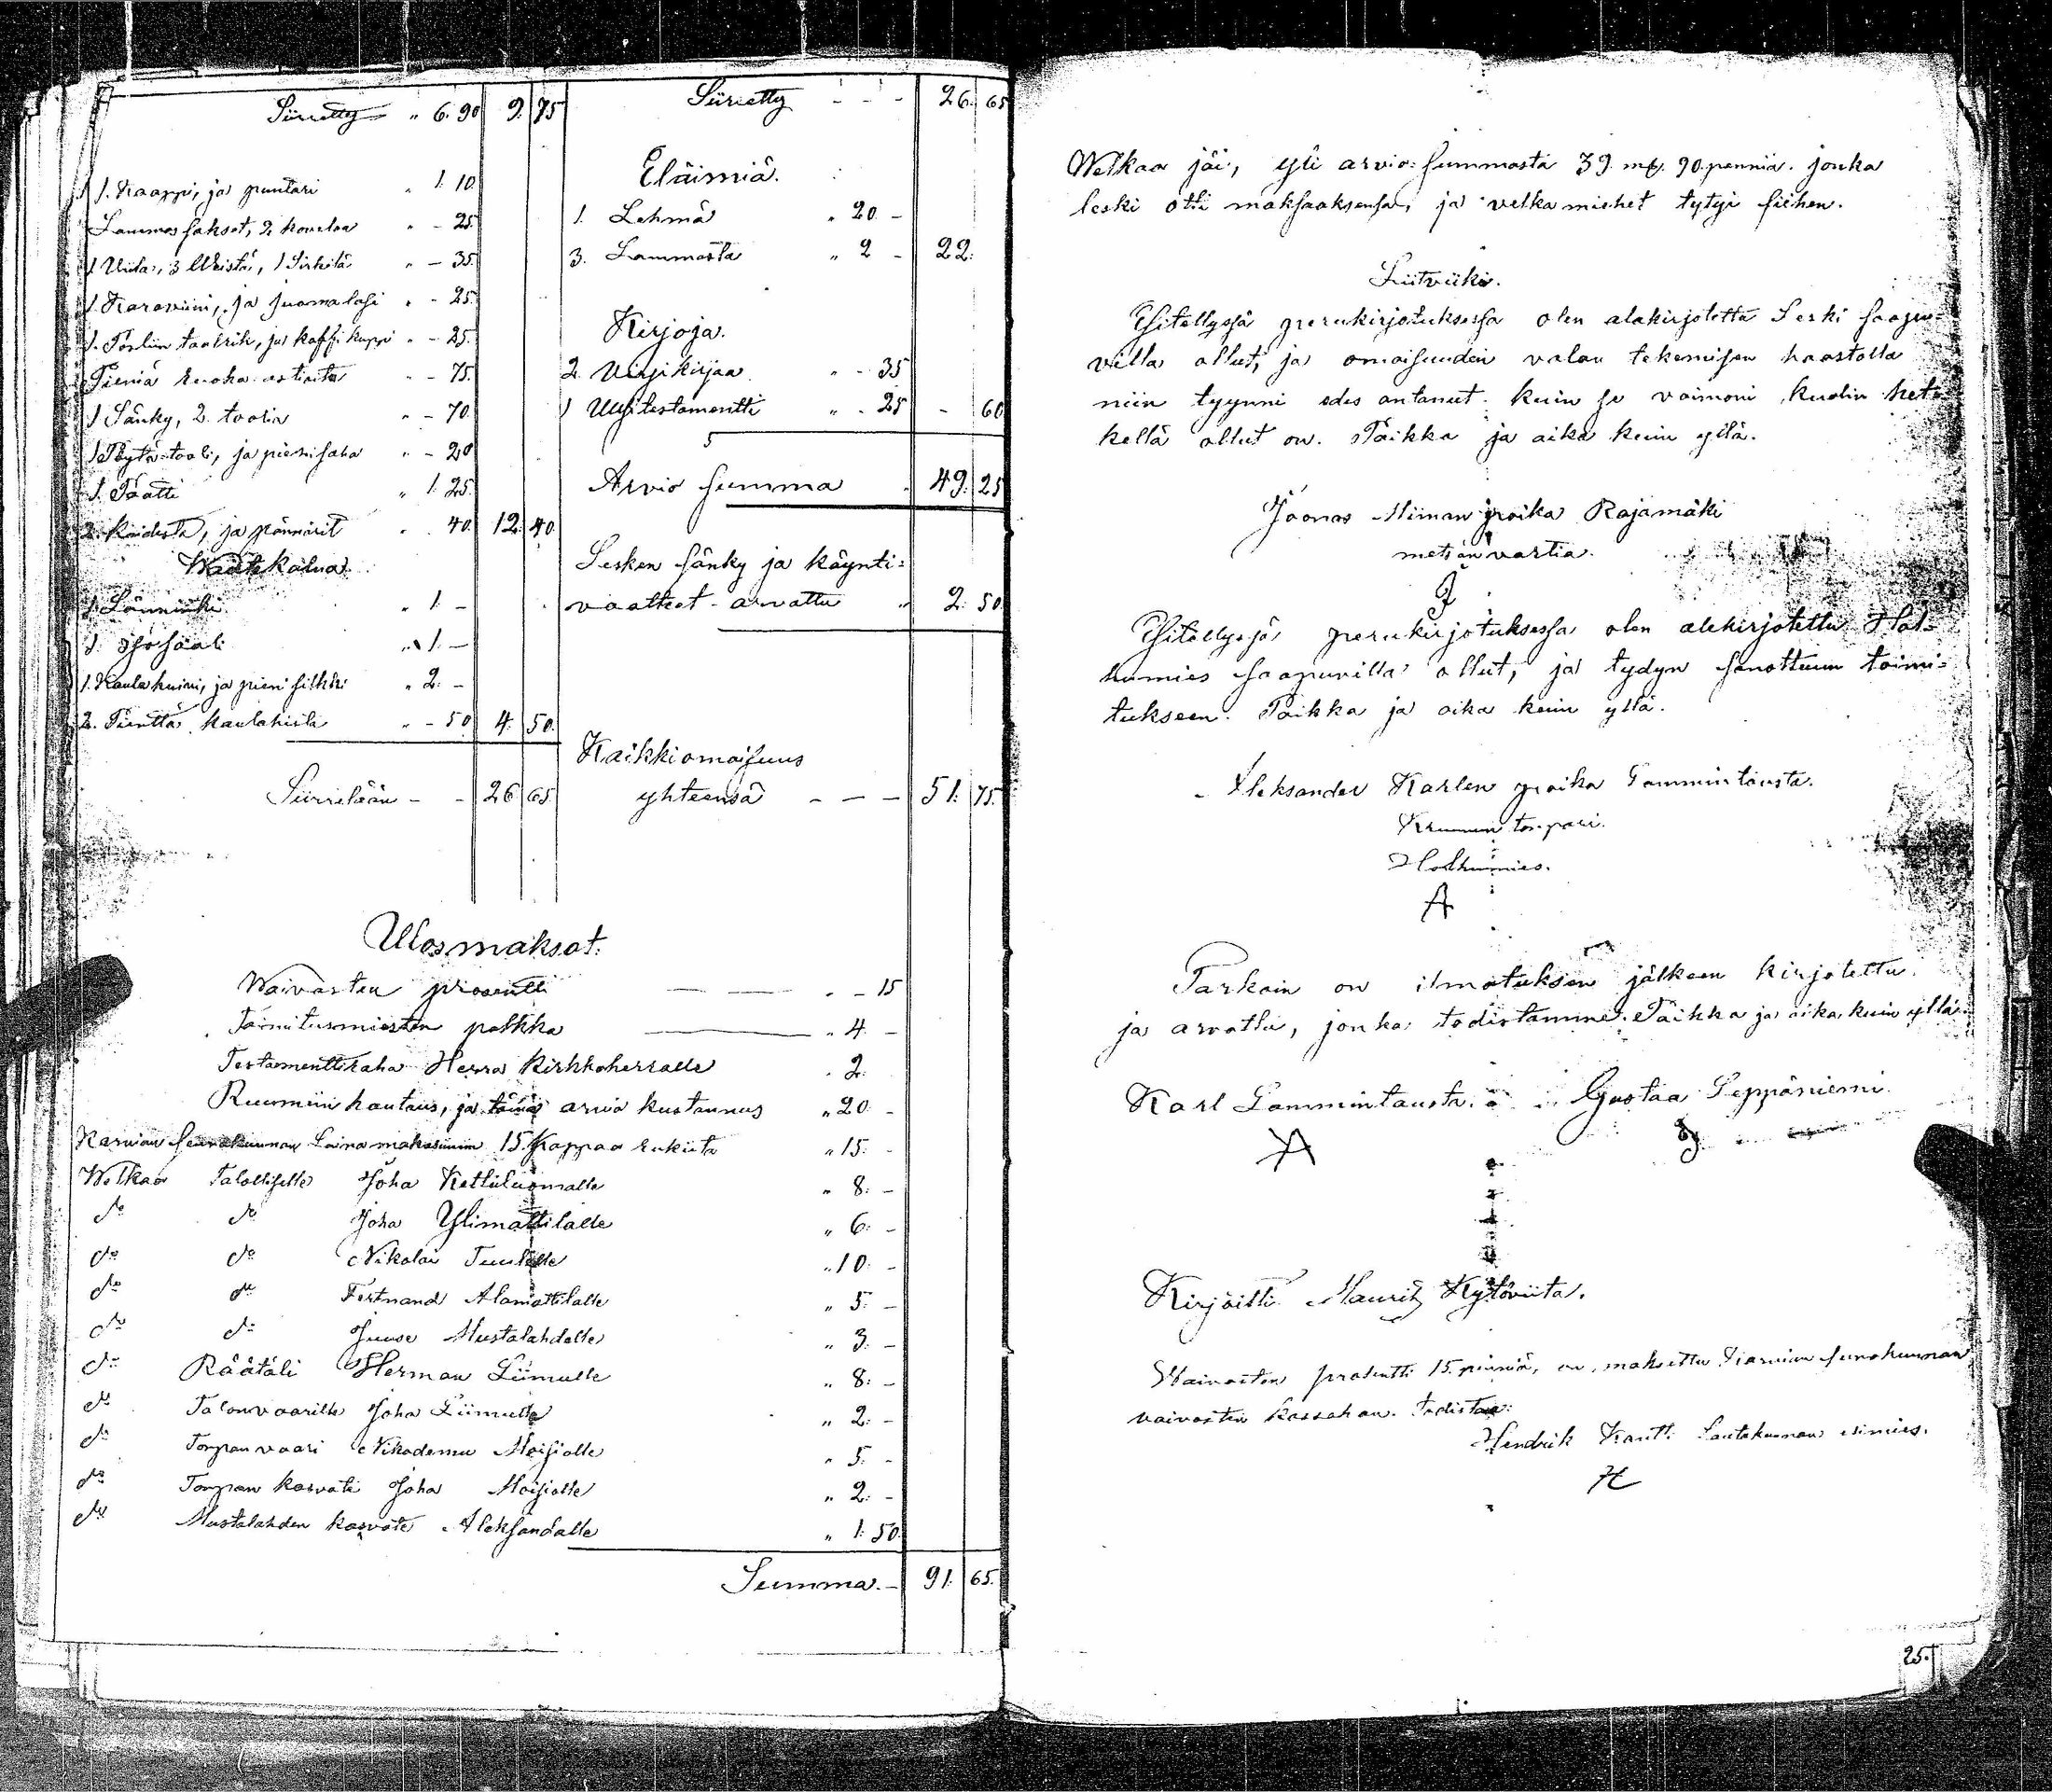 Siirretty " 6. 90 9. 75
1. Kaappi, ja puntari " 1. 10.
Lammas sakset, 2 " - 25.
1 Viila, 3 Weistä, 1 Sirkilä " - 35.
1. Karaviini, ja juomalasi " - 25.
1. Posliin taalrik, ja kaffi kuppi " - 25.
Pieniä ruoka astioita " - 75.
1 Sänky, 2 toolia " - 70.
1 Pöytä-tooli, ja pieni saha " - 20
1. Paatti " 1. 25.
2. ja " . 40. 12. 40.
Waate kalua.
1. Länninki " 1. -
1. isosaali " 1. -
1. Kaula huivi, ja pieni silkki " 2. -
2. Pienttä kaulahiista " - 50 4. 50.
Siirretään - - 26 65
Siirretty - - - 26. 65
Eläimiä.
1. Lehmä " 20 -
3. Lammasta " 2 - 22.
Kirjoja.
2. Virsikirjaa " - 35
1 Uusitestamentti " - 25 - 60
Arvio summa " 49. 25
Lesken sänky ja käynti-
vaatteet arvattu " 2. 50
Kaikki omaisuus
yhteensä - - - 51. 75.
Ulosmaksot.
Waivasten prosentti " - 15
Toimitusmiesten palkka " 4. -
Testamenttiraha Herra Kirkkoherralle " 2.
Ruumiin hautaus, ja tämä arvio kustannus " 20 -
Karvian seurakunnan Laina makasiinin 15. Kappaa rukiita " 15. -
Welkaa Talolliselle Joha Kettuluomalle " 8. -
do do Joha Ylimattilalle " 6. -
do do Nikolai Tuulelle " 10. -
do do Fertnand Alamattilalle " 5. -
do do Juuse Mustalahdalle " 3. -
do Räätäli Herman Liimulle " 8. -
do Talonvaarille Joha Liimulle " 2. -
do Torpanvaari Nikodemu Moisiolle " 5. -
do Torpan kasvati Joha Moisiolle " 2. -
do Mustalahden kasvate Aleksandalle " 1. 50.
Summa. - 91. 65.
Welkaa jäi, yli arvio summasta 39. mk. 90. penniä. jonka
leski otti maksaaksensa, ja velkamiehet tytyi siihen.
Liitviiki.
Esitellyssä perukirjotuksessa olen alakirjotettu Leski saapu-
villa ollut, ja omaisuuden valan tekemisen haastolla
niin tyynni edes antanut kuin se vaimoni kuolin het-
kellä ollut on. Paikka ja aika kuin yllä.
Joonas Miinan poika Rajamäki
metsän vartia.
J
Esitellyssä perukirjotuksessa olen alekirjotettu Hol-
humies saapuvilla ollut, ja tydyn sanottuun toimi-
tukseen. Paikka ja aika kuin yllä.
Aleksander Karlen poika Lammintausta.
Kruunun torpari.
Holhumies.
A
Tarkoin on ilmotuksen jälkeen kirjotettu
ja arvottu, jonka todistamme. Paikka ja aika kuin yllä.
Karl Lammintausta. Gustaa Leppäniemi.
Kirjoitti Mauritz Kytöviita.
Waivasten prosentti 15. penniä, on maksettu Karvian seurakunnan
vaivasten kassahan. todistaa:
Hendrik Kantti Lautakunnan esimies.
H
25.